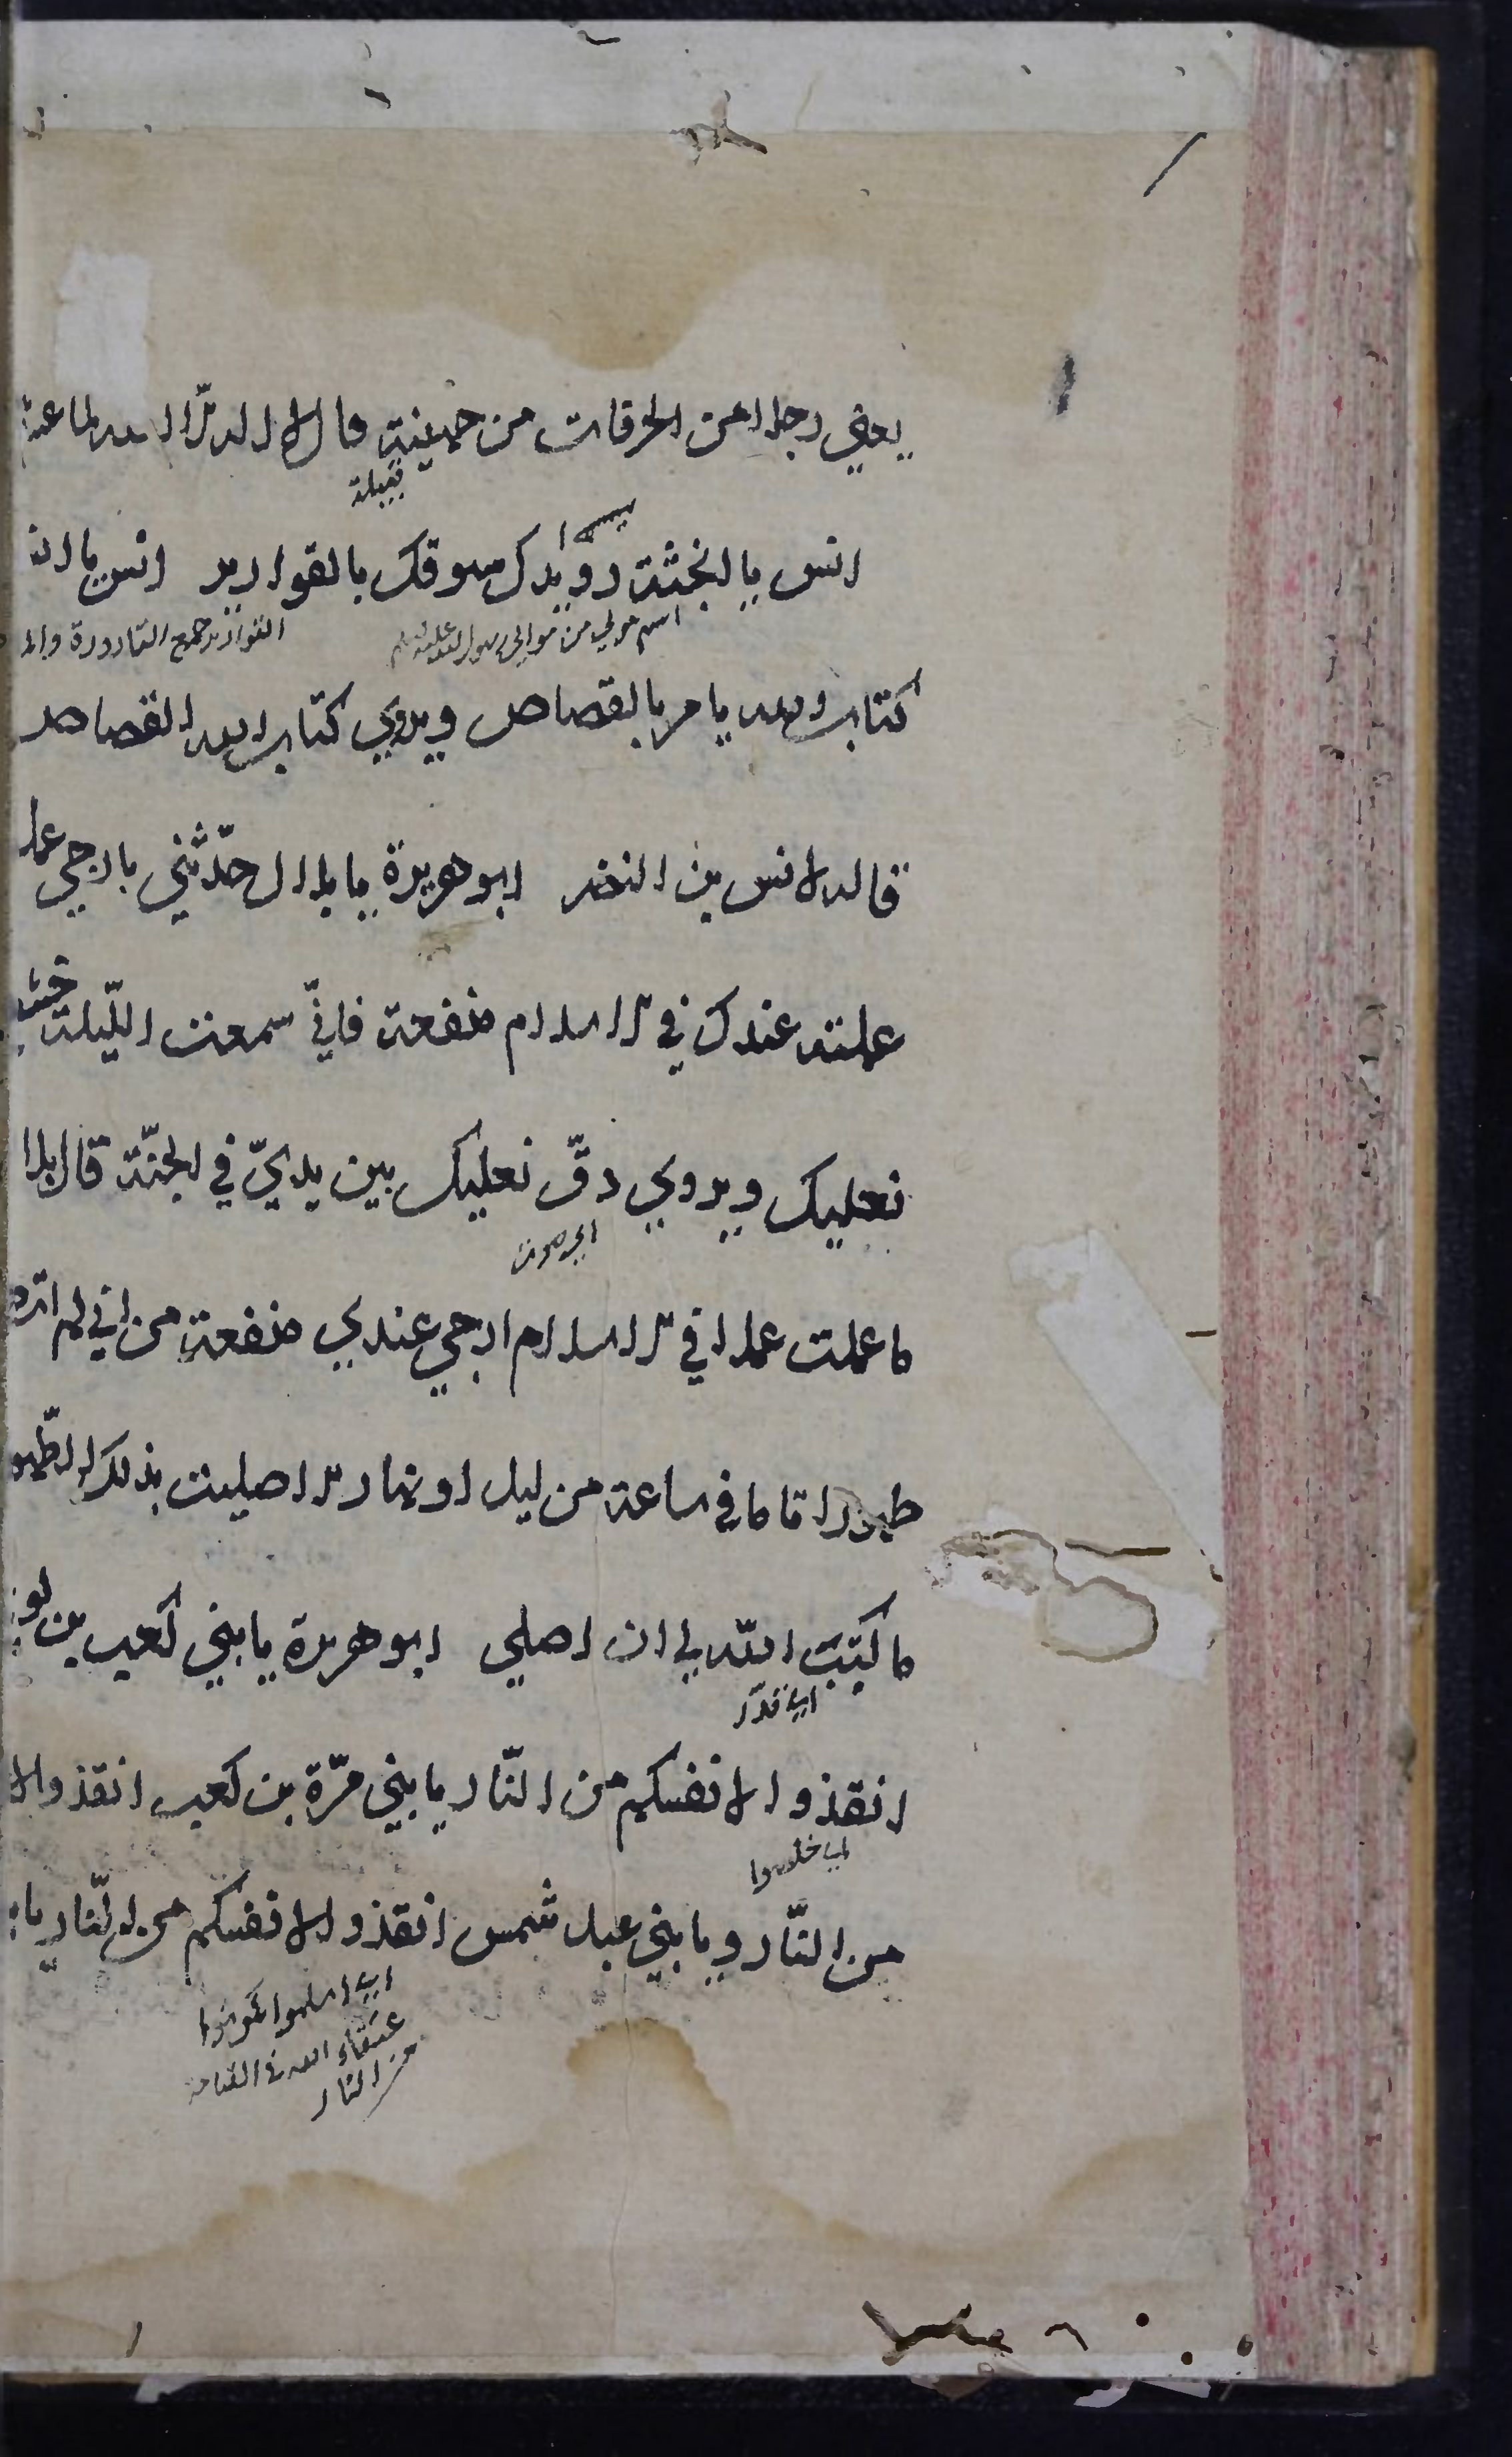 يعني رجلا من الحرقات من جهينة قال لا اله الا الله لما عنه
قبيلة
انس يا انجشة رويدك سوقك بالقوارير انس يا انـ
اسم مولي من موالي رسول الله عليه السلم القوارير جمع القارورة والمـ
كتاب الله يامر بالقصاص ويروي كتاب الله القصاص
قاله لانس بن النضر ابو هريرة يا بلال حدّثني بارجي عمل
عملته عندك في الاسلام منفعة فانيّ سمعت اللّيلة خشـ
نعليك ويروي دفّ نعليك بين يديّ في الجنّة قال بلا
اي صوت
ما عملت عملا في الاسلام ارجي عندي منفعة من اني لم اتطهر
طهورا تاما في ساعة من ليل او نهار الا صليت بذلك الطّهو
ما كتب اللّه لي ان اصلي ابو هريرة يا بني كعب بن لو
اي قدّر
انقذوا انفسكم من النّار يا بني مرّة بن كعب انقذوا ا
اي خلصوا
من النّار ويا بني عبد شمس انقذوا انفسكم من النّار يا
اي اسلموا لتكونوا
عتقاء الله في القيامة
من النار